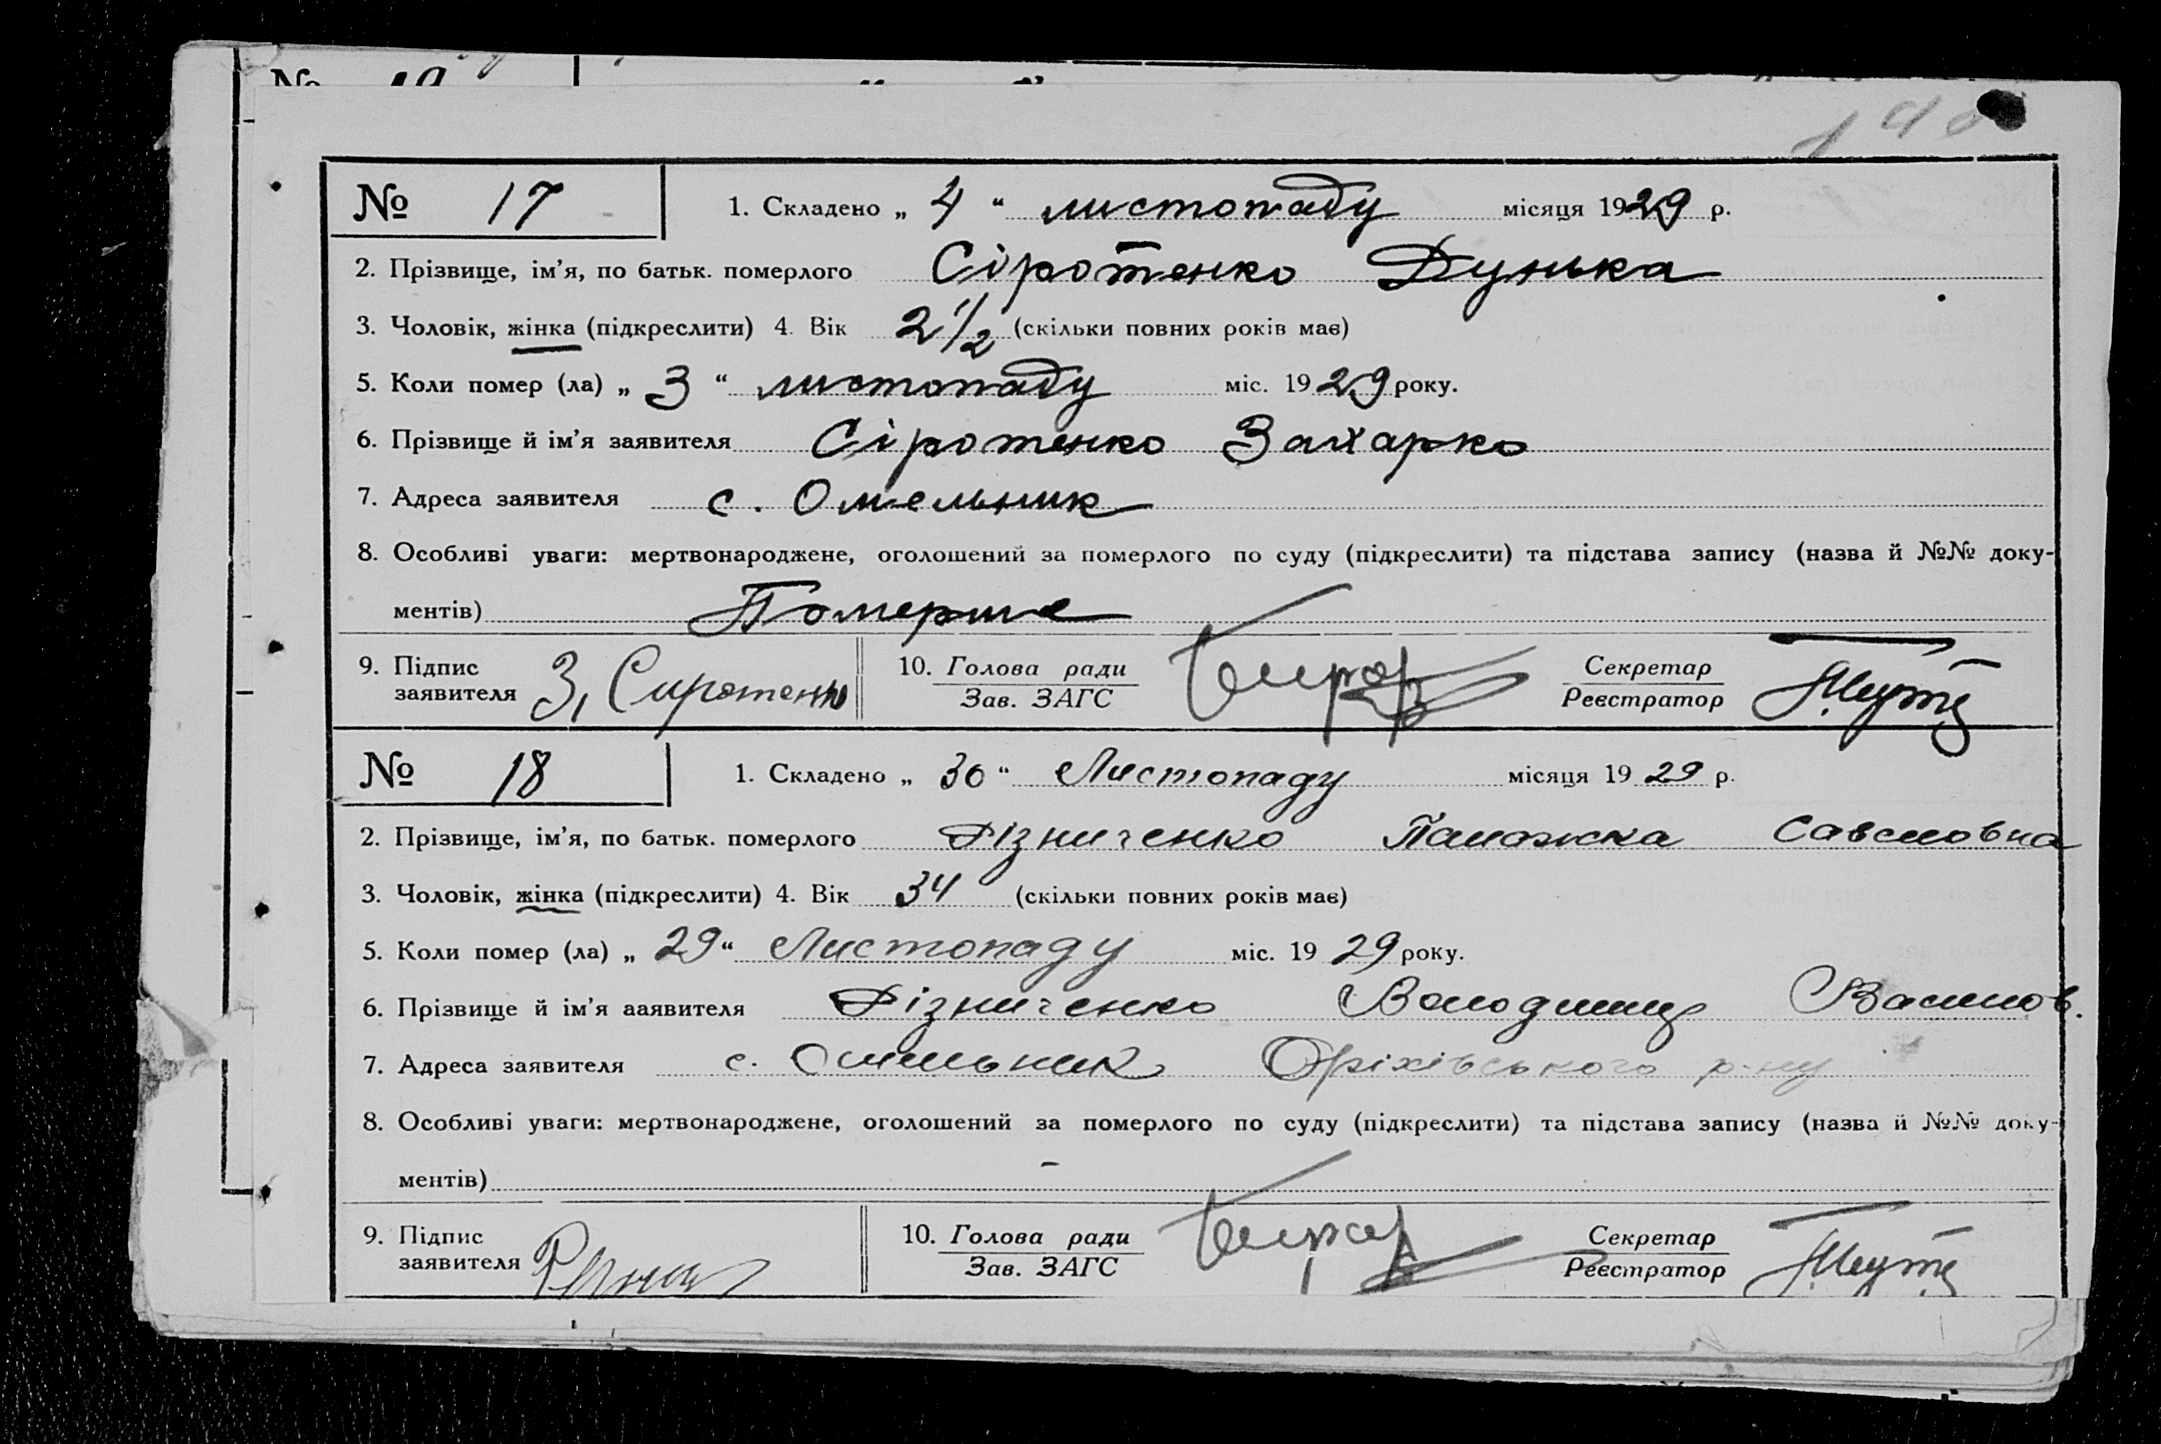 № 17 1. Складено „ 4 “ листопаду місяця 1929 р.
2. Прізвище, ім’я, по батьк. померлого Сіротенко Дунька
3. Чоловік, жінка (підкреслити) 4. Вік 2 1/2 (скільки повних років має)
5. Коли помер (ла) „ 3 “ листопаду міс. 1929 року.
6. Прізвище й ім’я заявителя Сіротенко Захарко
7. Адреса заявителя с. Омельник
8. Особливі уваги: мертвонароджене, оголошений за померлого по суду (підкреслити) та підстава запису (назва й №№ доку-
ментів) Померше
9. Підпис заявителя З. Сиротенко 10. Голова ради Зав. ЗАГС Секретар Реєстратор
№ 18 1. Складено „ 30 “ Листопаду місяця 1929 р.
2. Прізвище, ім’я, по батьк. померлого Різниченко Палажка Савеловна
3. Чоловік, жінка (підкреслити) 4. Вік 34 (скільки повних років має)
5. Коли помер (ла) „ 29 “ Листопаду міс. 1929 року.
6. Прізвище й ім’я ааявителя Різниченко Володимир
7. Адреса заявителя с. Омельник Оріхівського р-ну
8. Особливі уваги: мертвонароджене, оголошений за померлого по суду (підкреслити) та підстава запису (назва й №№ доку-
ментів) –
9. Підпис заявителя 10. Голова ради Зав. ЗАГС Секретар Реєстратор